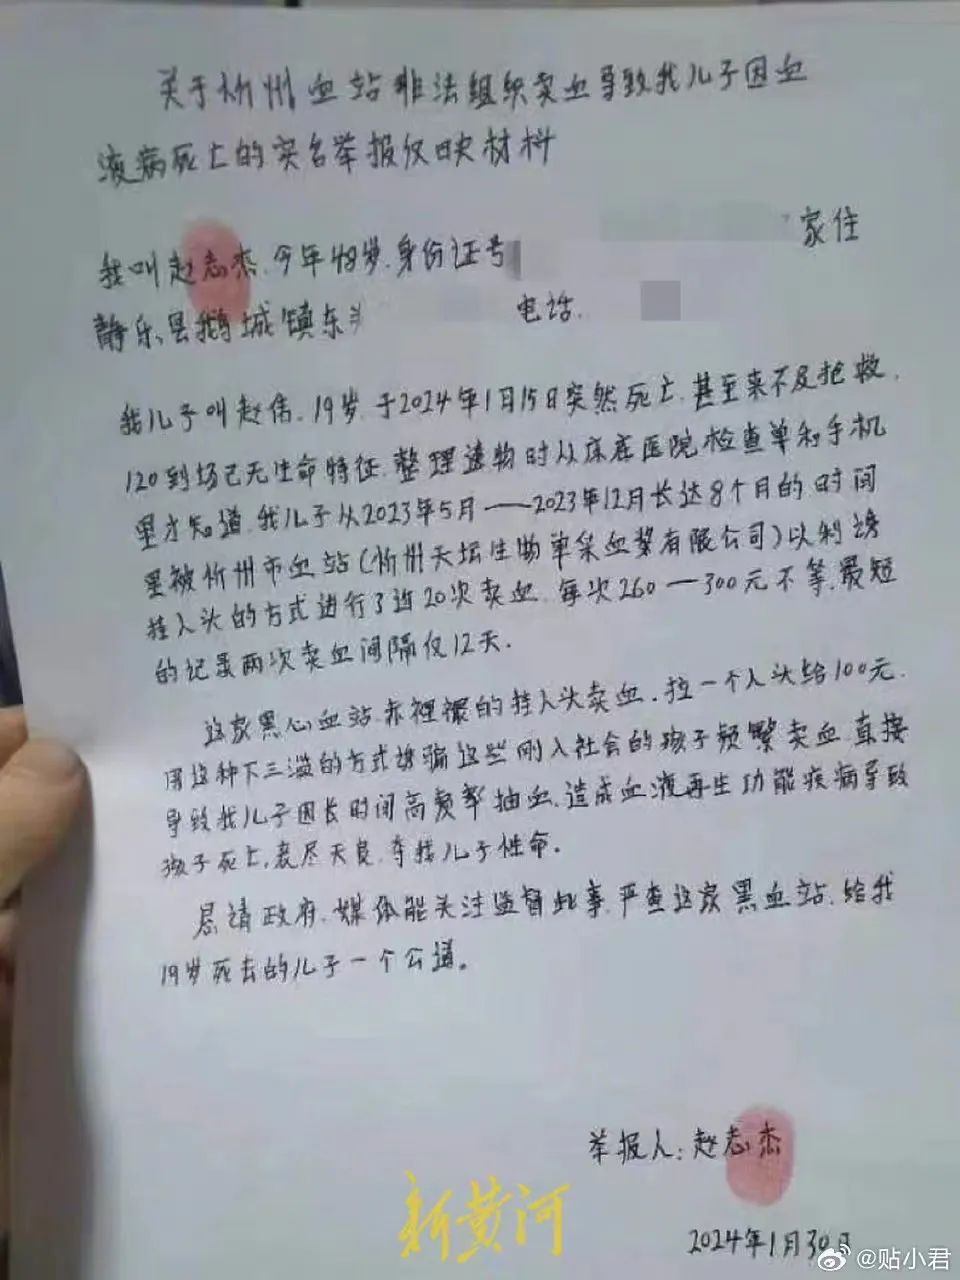 关于忻州血站非法组织卖血导致我儿子因血
液病死亡的实名举报仅映材料
我叫赵志杰.今年48岁.身份证号
家住
静乐县鹅城镇东
电话.
我儿子叫赵伟.19岁.于2024年1月15日突然死亡.甚至来不及抢救.
120到场已无生命特征.整理遗物时从床底医院检查单和手机
里才知道.我儿子从2023年5月——2023年12月长达8个月的时间
里被忻州市血站(忻州天坛生物单采血浆有限公司)以利诱
挂人头的方式进行了近20次卖血.每次260—300元不等.最短
的记录两次卖血间隔仅12天.
这家黑心血站.赤裡裸的挂人头卖血.拉一个人头给100元.
用这种下三滥的方式诱骗这些刚入社会的孩子频繁卖血.直接
导致我儿子因长时间高频率抽血.造成血液再生功能疾病导致
孩子死亡.丧尽天良.夺我儿子性命.
恳请政府.媒体能关注监督此事.严查这家黑血站.给我
19岁死去的儿子一个公道。
举报人:赵志杰
新黄河
2024年1月30日
@贴小君